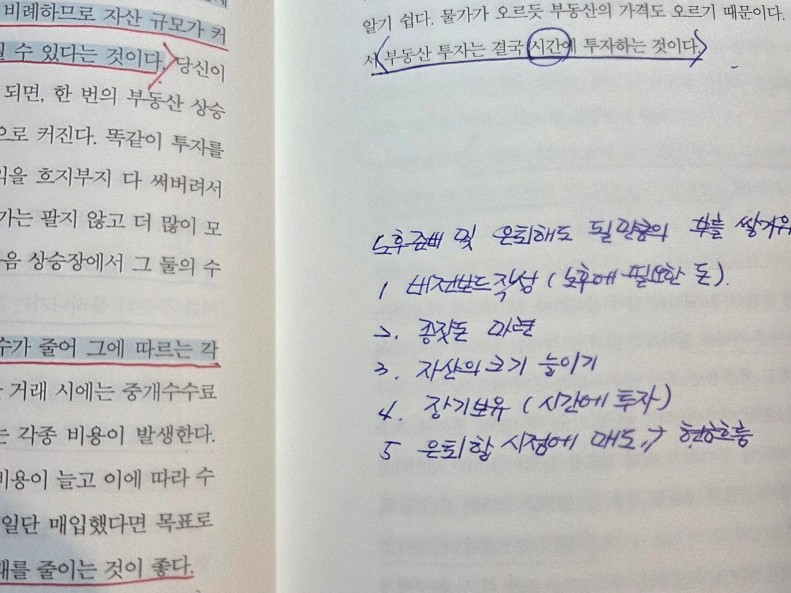 비례하므로 자산 규모가 커
수 있다는 것이다. 당신이
되면, 한 번의 부동산 상승
으로 커진다. 똑같이 투자를
을 흐지부지 다 써버려서
가는 팔지 않고 더 많이 모
음 상승장에서 그 둘의 수
수가 줄어 그에 따르는 각
거래 시에는 중개수수료
는 각종 비용이 발생한다.
비용이 늘고 이에 따라 수
일단 매입했다면 목표로
래를 줄이는 것이 좋다.
알기 쉽다. 물가가 오르듯 부동산의 가격도 오르기 때문이다.
서 부동산 투자는 결국 시간에 투자하는 것이다.
노후준비 및 은퇴해도 될 만큼의 부를 쌓기위
1 비전보드작성 (노후에 필요한 돈).
2. 종잣돈 마련
3. 자산의 크기 늘이기
4. 장기보유 (시간에 투자)
5 은퇴할 시점에 매도 → 현금흐름